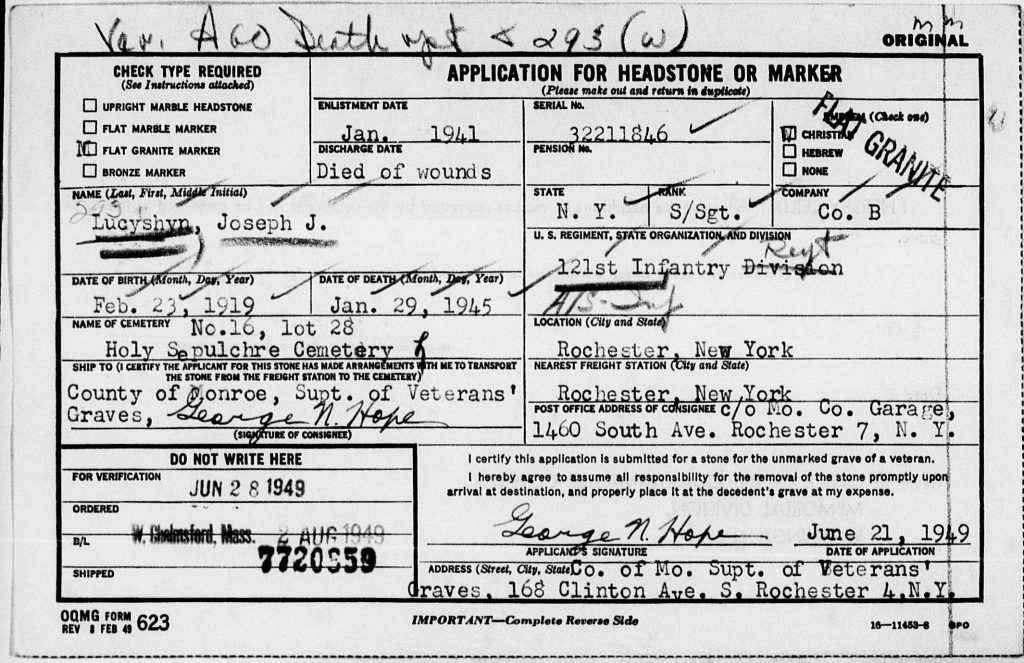 Ver. AGO Death rpt & 293 (W)
mm
ORIGINAL
CHECK TYPE REQUIRED
(See Instructions attached)
UPRIGHT MARBLE HEADSTONE
FLAT MARBLE MARKER
FLAT GRANITE MARKER
BRONZE MARKER
APPLICATION FOR HEADSTONE OR MARKER
(Please make out and return in duplicate)
ENLISTMENT DATE
Jan. 1941
DISCHARGE DATE
Died of wounds
SERIAL No.
32211846
PENSION No.
EMBLEM (Check one)
CHRISTIAN
HEBREW
NONE
FLAT GRANITE
NAME (Last, First, Middle Initial)
293
Lucyshyn, Joseph J.
STATE
N. Y.
RANK
S/Sgt.
COMPANY
Co. B
U. S. REGIMENT, STATE ORGANIZATION, AND DIVISION
Regt
121st Infantry Division
DATE OF BIRTH (Month, Day, Year)
Feb. 23, 1919
DATE OF DEATH (Month, Day, Year)
Jan. 29, 1945
NAME OF CEMETERY No.16, lot 28
Holy Sepulchre Cemetery
LOCATION (City and State)
Rochester, New York
SHIP TO (I CERTIFY THE APPLICANT FOR THIS STONE HAS MADE ARRANGEMENTS WITH ME TO TRANSPORT
THE STONE FROM THE FREIGHT STATION TO THE CEMETERY)
County of Monroe, Supt. of Veterans'
Graves, George N. Hope
(SIGNATURE OF CONSIGNEE)
NEAREST FREIGHT STATION (City and State)
Rochester, New York
POST OFFICE ADDRESS OF CONSIGNEE c/o Mo. Co. Garage,
1460 South Ave. Rochester 7, N. Y.
DO NOT WRITE HERE
FOR VERIFICATION
JUN 28 1949
ORDERED
B/L
W. Chelmsford, Mass. 2 AUG 1949
7720359
SHIPPED
I certify this application is submitted for a stone for the unmarked grave of a veteran.
I hereby agree to assume all responsibility for the removal of the stone promptly upon
arrival at destination, and properly place it at the decedent's grave at my expense.
George N. Hope June 21, 1949
APPLICANT'S SIGNATURE DATE OF APPLICATION
ADDRESS (Street, City, State) Co. of Mo. Supt. of Veterans'
Graves, 168 Clinton Ave. S. Rochester 4,N.Y.
OQMG FORM
REV 8 FEB 49 623
IMPORTANT—Complete Reverse Side
16—11453-8 GPO